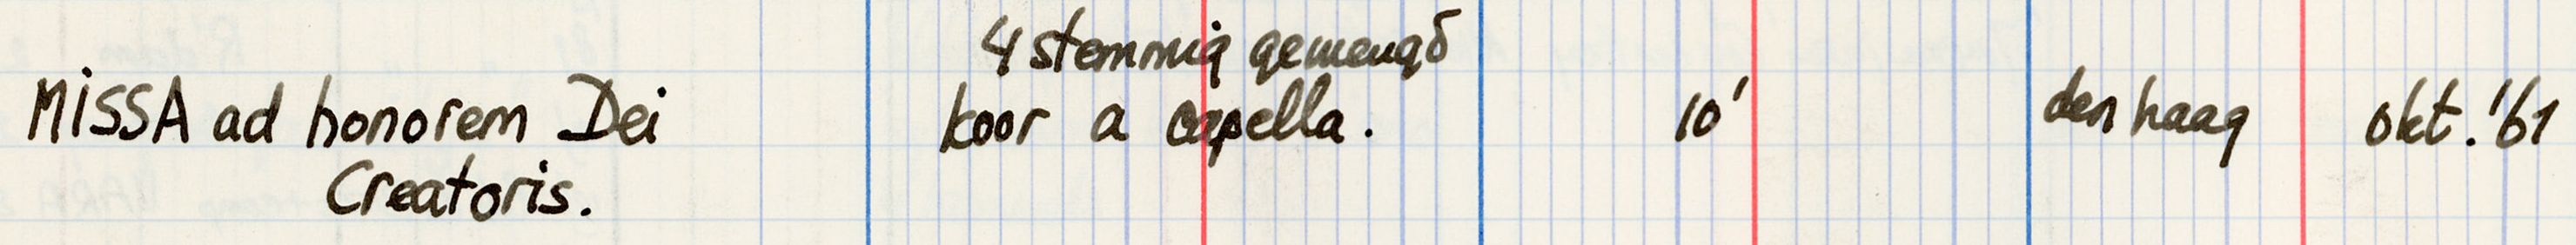 4 stemmig gemengd
MISSA ad honorem Dei koor a capella. 10' den haag okt. '61
Creatoris.